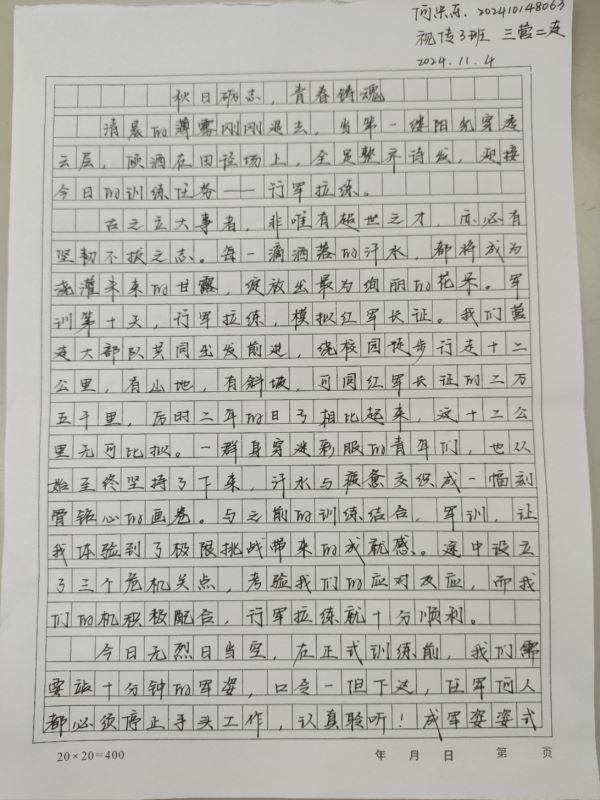 何米乐. 202410148063
视传3班 三营二连
2024.11.4
秋日砺志，青春铸魂
清晨的薄雾刚刚退去，当第一缕阳光穿透
云层，倾洒在田径场上，全足整齐待发，迎接
今日的训练任务——行军拉练。
古之立大事者，非唯有超世之才，亦必有
坚韧不拔之志。每一滴洒落的汗水，都将成为
浇灌未来的甘露，绽放出最为绚丽的花朵。军
训第十天，行军拉练，模拟红军长征。我们营
连大部队共同出发前进，绕校园徒步行走十二
公里，有山地，有斜坡，可同红军长征的二万
五千里，历时二年的日子相比起来，这十二公
里无可比拟。一群身穿迷彩服的青年们，也从
始至终坚持了下来，汗水与疲惫交织成一幅刻
骨铭心的画卷。与之前的训练结合，军训，让
我体验到了极限挑战带来的成就感。途中设立
了三个危机关点，考验我们的应对反应，而我
们的机积极配合，行军拉练就十分顺利。
今日无烈日当空，在正式训练前，我们需
要站十分钟的军姿，口令一但下达，任军何人
都必须停止手头工作，认真聆听！成军姿姿式
20×20=400
年 月 日 第 页